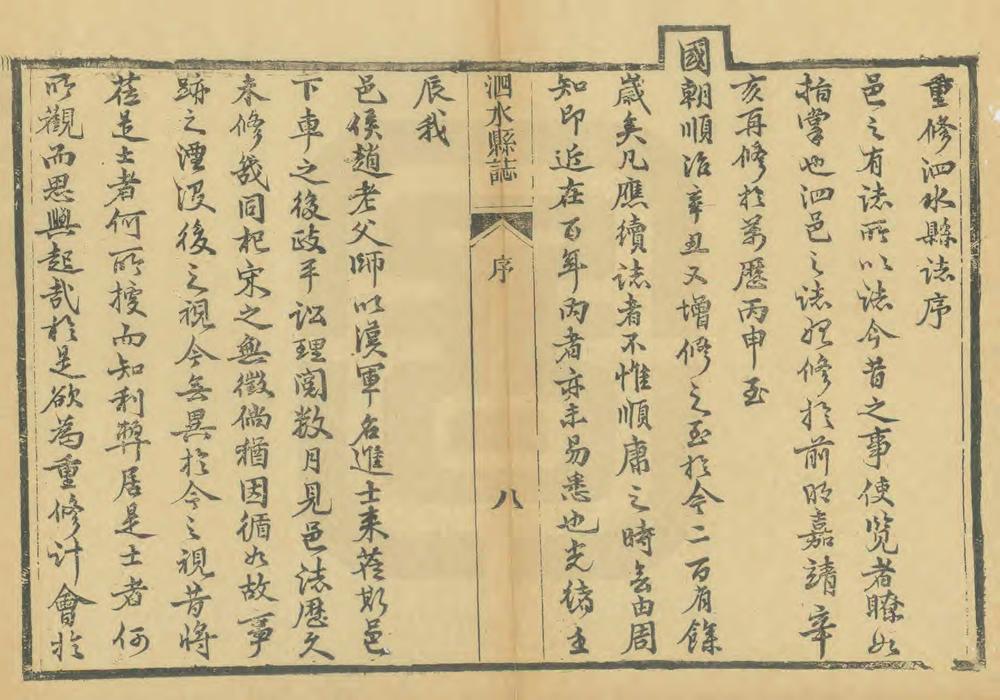 重修泗水縣誌序
邑之有誌所以誌今昔之事使覽者瞭如
指掌也泗邑之誌始修於前明嘉靖辛
亥再修於萬曆丙申至
國朝順治辛丑又增修之至於今二百有餘
歲矣凡應續誌者不惟順庸之時無由周
知即近在百年內者亦未易悉也光緒壬
泗水縣誌
序
八
辰我
邑侯趙老父師以漢軍名進士來蒞斯邑
下車之後政平訟理閱數月見邑誌歷久
未修幾同杞宋之無徵倘猶因循如故事
跡之湮沒後之視今無異於今之視昔將
蒞是土者何所據而知利弊居是土者何
所觀而思興起哉於是欲為重修計會於